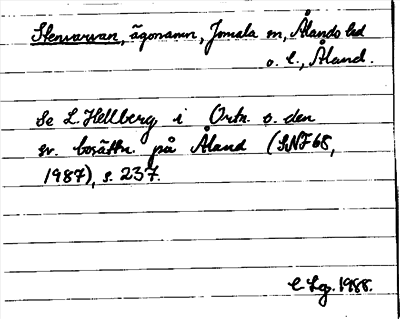 Stenvarvan, ägonamn, Jomala sn, Ålands lvd
o. l., Åland.
Se L. Hellberg i Ortn. o. den
sv. bosättn. på Åland (SNF 68,
1987), s. 237.
1988.